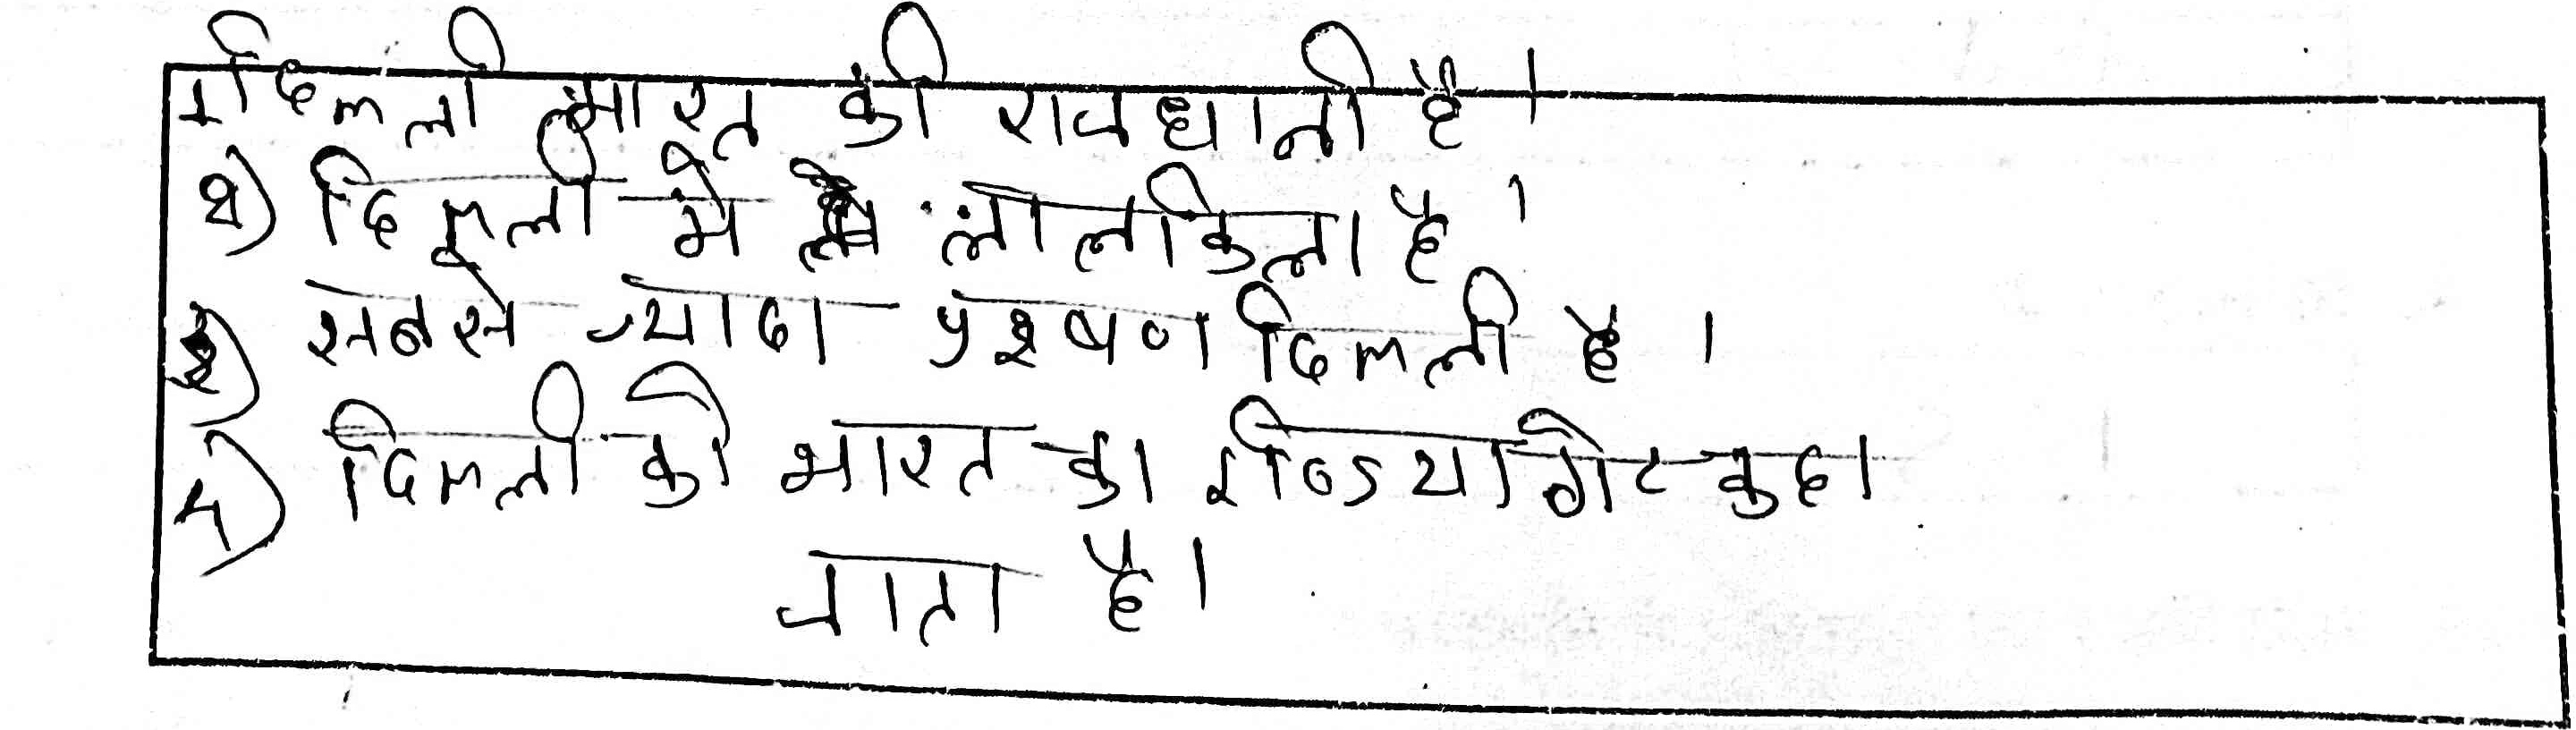 १) दिल्ली भारत की राजधानी है।
२) दिल्ली मे लालकिला है।
३) सबसे ज्यादा प्रदुषण दिल्ली है।
४) दिल्ली को भारत का इण्डिया गेट कहा
जाता है।